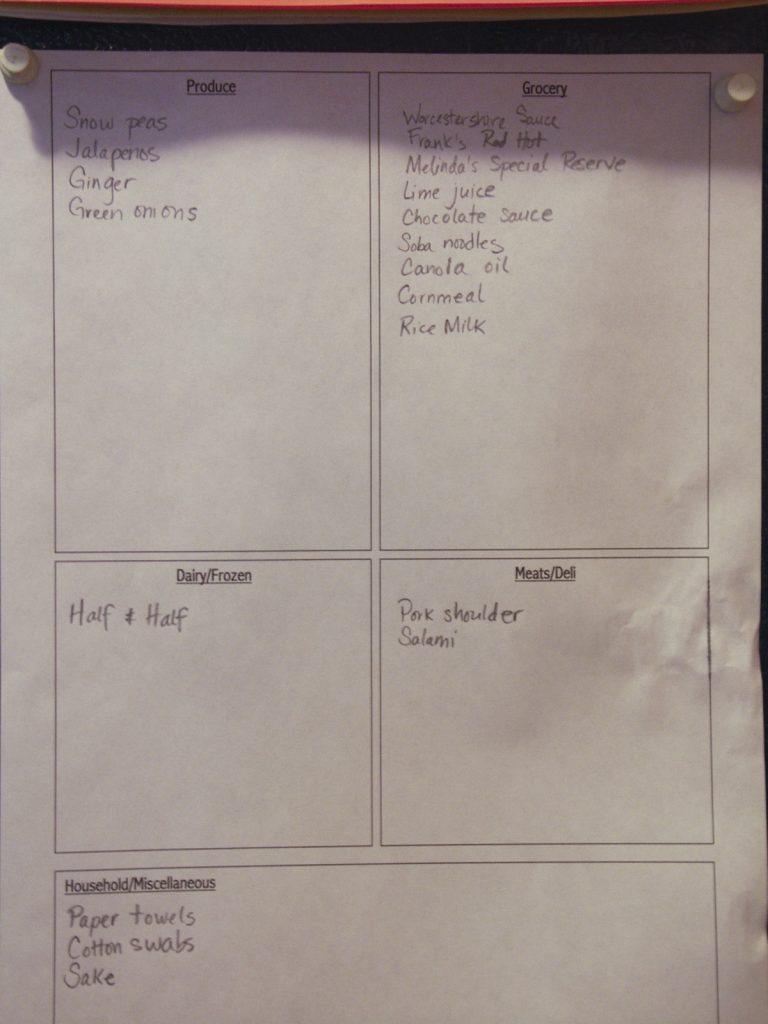 Produce
Snow peas
Jalapenos
Ginger
Green onions
Grocery
Worcestershire Sauce
Frank's Red Hot
Melinda's Special Reserve
Lime juice
Chocolate sauce
Soba noodles
Canola oil
Cornmeal
Rice Milk
Dairy/Frozen
Half & Half
Meats/Deli
Pork shoulder
Salami
Household/Miscellaneous
Paper towels
Cotton swabs
Sake